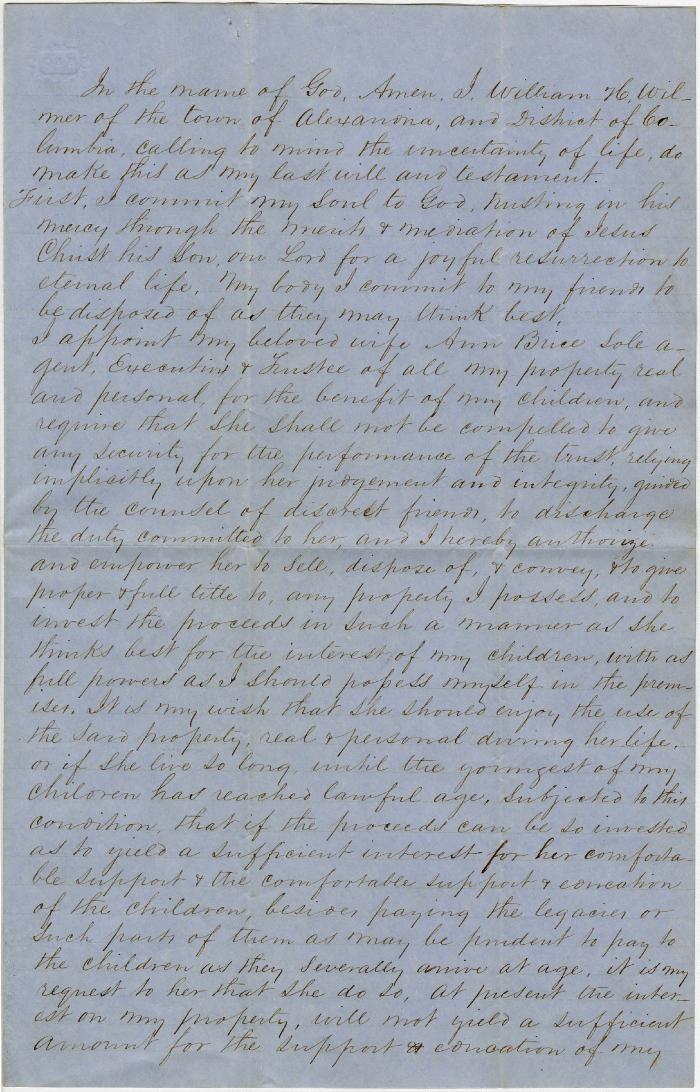 In the name of God, Amen. I, William H. Wil-
mer of the town of Alexandria, and District of Co-
lumbia, calling to mind the uncertainty of life, do
make this as my last will and testament.
First, I commit my Soul to God, trusting in his
mercy through the merits & mediation of Jesus
Christ his Son, our Lord for a joyful resurrection to
eternal life. My body I commit to my friends to
be disposed of as they may think best.
I appoint my beloved wife Ann Brice Sole a-
gent, Executrix & Trustee of all my property real
and personal, for the benefit of my children, and
require that She Shall not be compelled to give
any Security for the performance of the trust, relying
implicitly upon her judgement and integrity, guided
by the counsel of discreet friends, to discharge
the duty committed to her, and I hereby authorize
and empower her to Sell, dispose of, & convey, & to give
proper & full title to, any property I possess, and to
invest the proceeds in Such a manner as She
thinks best for the interest of my children, with as
full powers as I Should possess myself in the prem-
ises. It is my wish that She Should enjoy the use of
the Said property, real & personal during her life,
or if She live So long, until the youngest of my
children has reached lawful age, Subjected to this
condition, that if the proceeds can be So invested
as to yield a Sufficient interest for her comforta-
ble Support & the comfortable Support & education
of the children, besides paying the legacies or
Such parts of them as may be prudent to pay to
the children as they Severally arrive at age, it is my
request to her that She do So. At present the inter-
est on my property, will not yield a Sufficient
amount for the Support & education of my